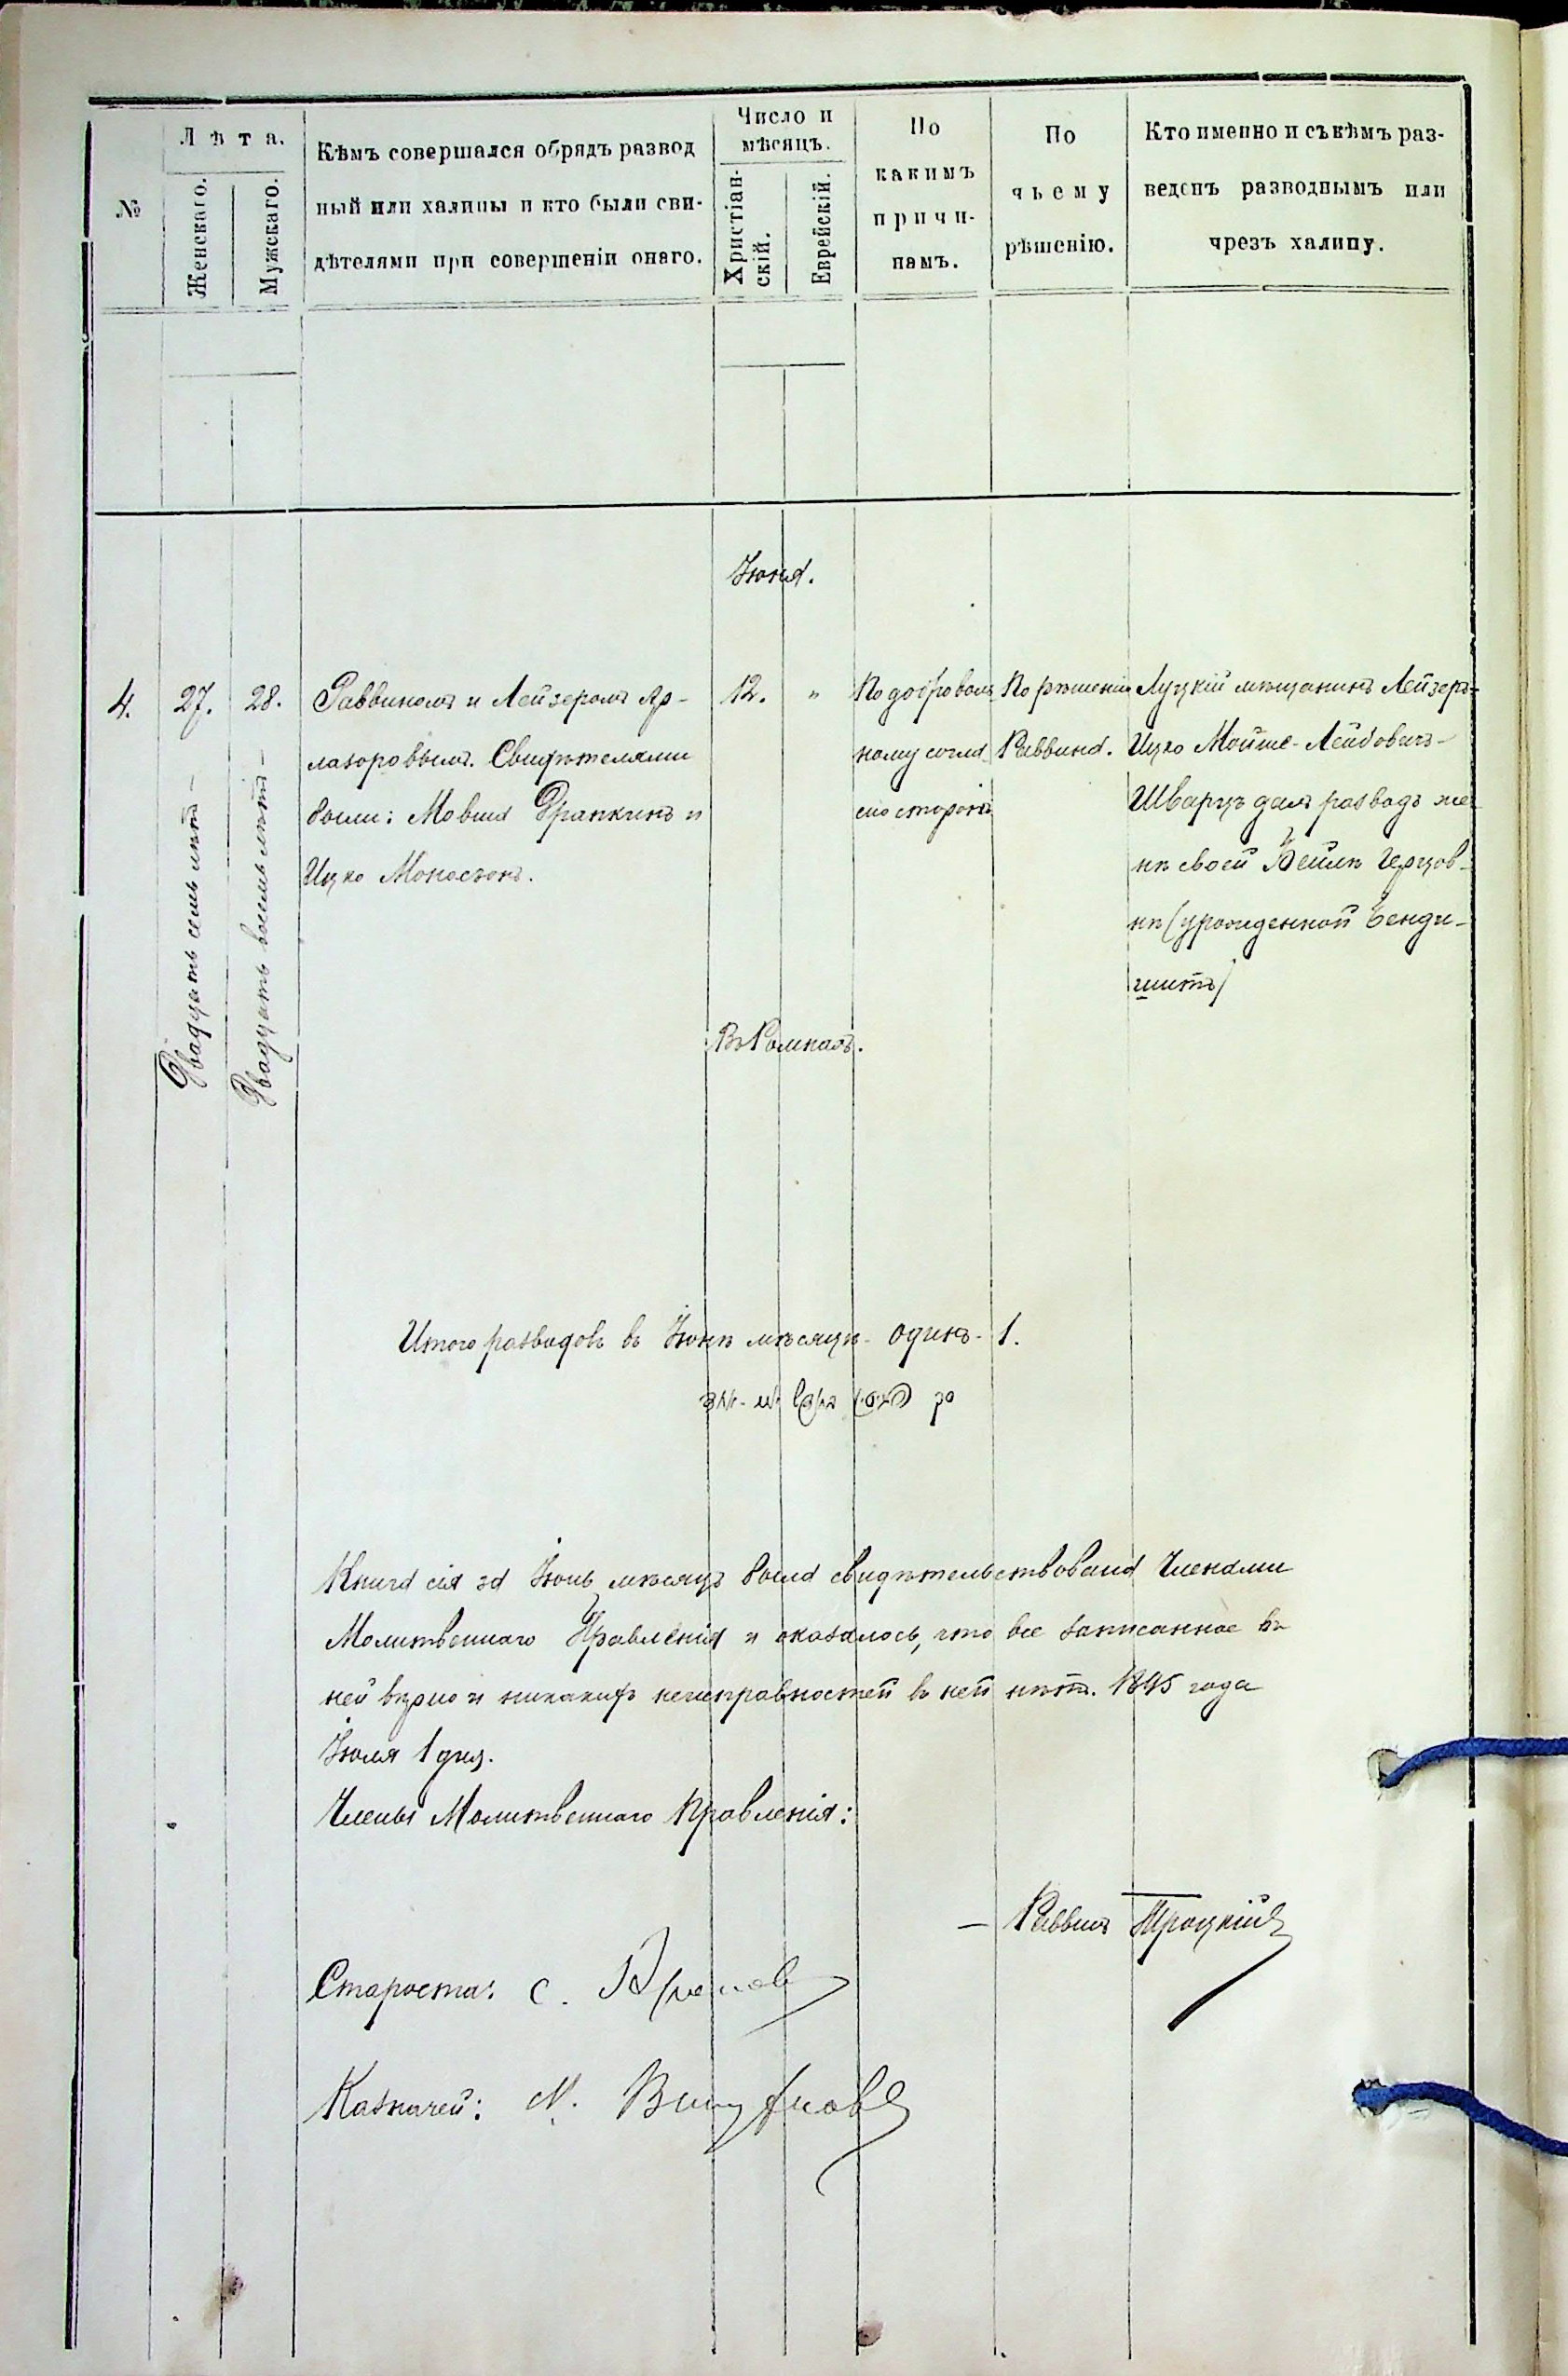 №
Лѣта.
Женскаго.
Мужскаго.
Кѣмъ совершался обрядъ развод
ный или халицы и кто были сви-
дѣтелями при совершеніи онаго.
Число и
мѣсяцъ.
Христіан-
скій.
Еврейскій.
По
какимъ
причи-
намъ.
По
чьему
рѣшенію.
Кто именно и съ кѣмъ раз-
веденъ разводнымъ или
чрезъ халицу.
Іюня.
4.
27.
Двадцать семь лѣтъ -
28.
Двадцать восемь лѣтъ -
Раввиномъ и Лейзеромъ Ар-
лазоровымъ. Свидѣтелями
были: Мовша Драпкинъ и
Ицко Моносзон.
12. "
По доброволь
ному согла
сію сторонъ
По рѣшенію
Раввина.
Луцкій мѣщанинъ Лейзеръ-
Ицко Мойше-Лейбовичъ-
Шварцъ далъ разводъ же
нѣ своей Бейлѣ Герцов-
нѣ (урожденной Бенди-
гшитъ)
Въ Ромнахъ.
Итого разводовъ въ Іюнѣ мѣсяцѣ - одинъ - 1.
Книга сія за Іюнь мѣсяцъ была свидѣтельствована Членами
Молитвеннаго Правленія и оказалось, что все записанное въ
ней вѣрно и никакихъ неисправностей въ ней нѣтъ. 1895 года
Іюля 1 дня.
Члены Молитвеннаго Правленія:
— Раввинъ Троцкій
Староста: С.
Казначей: М.